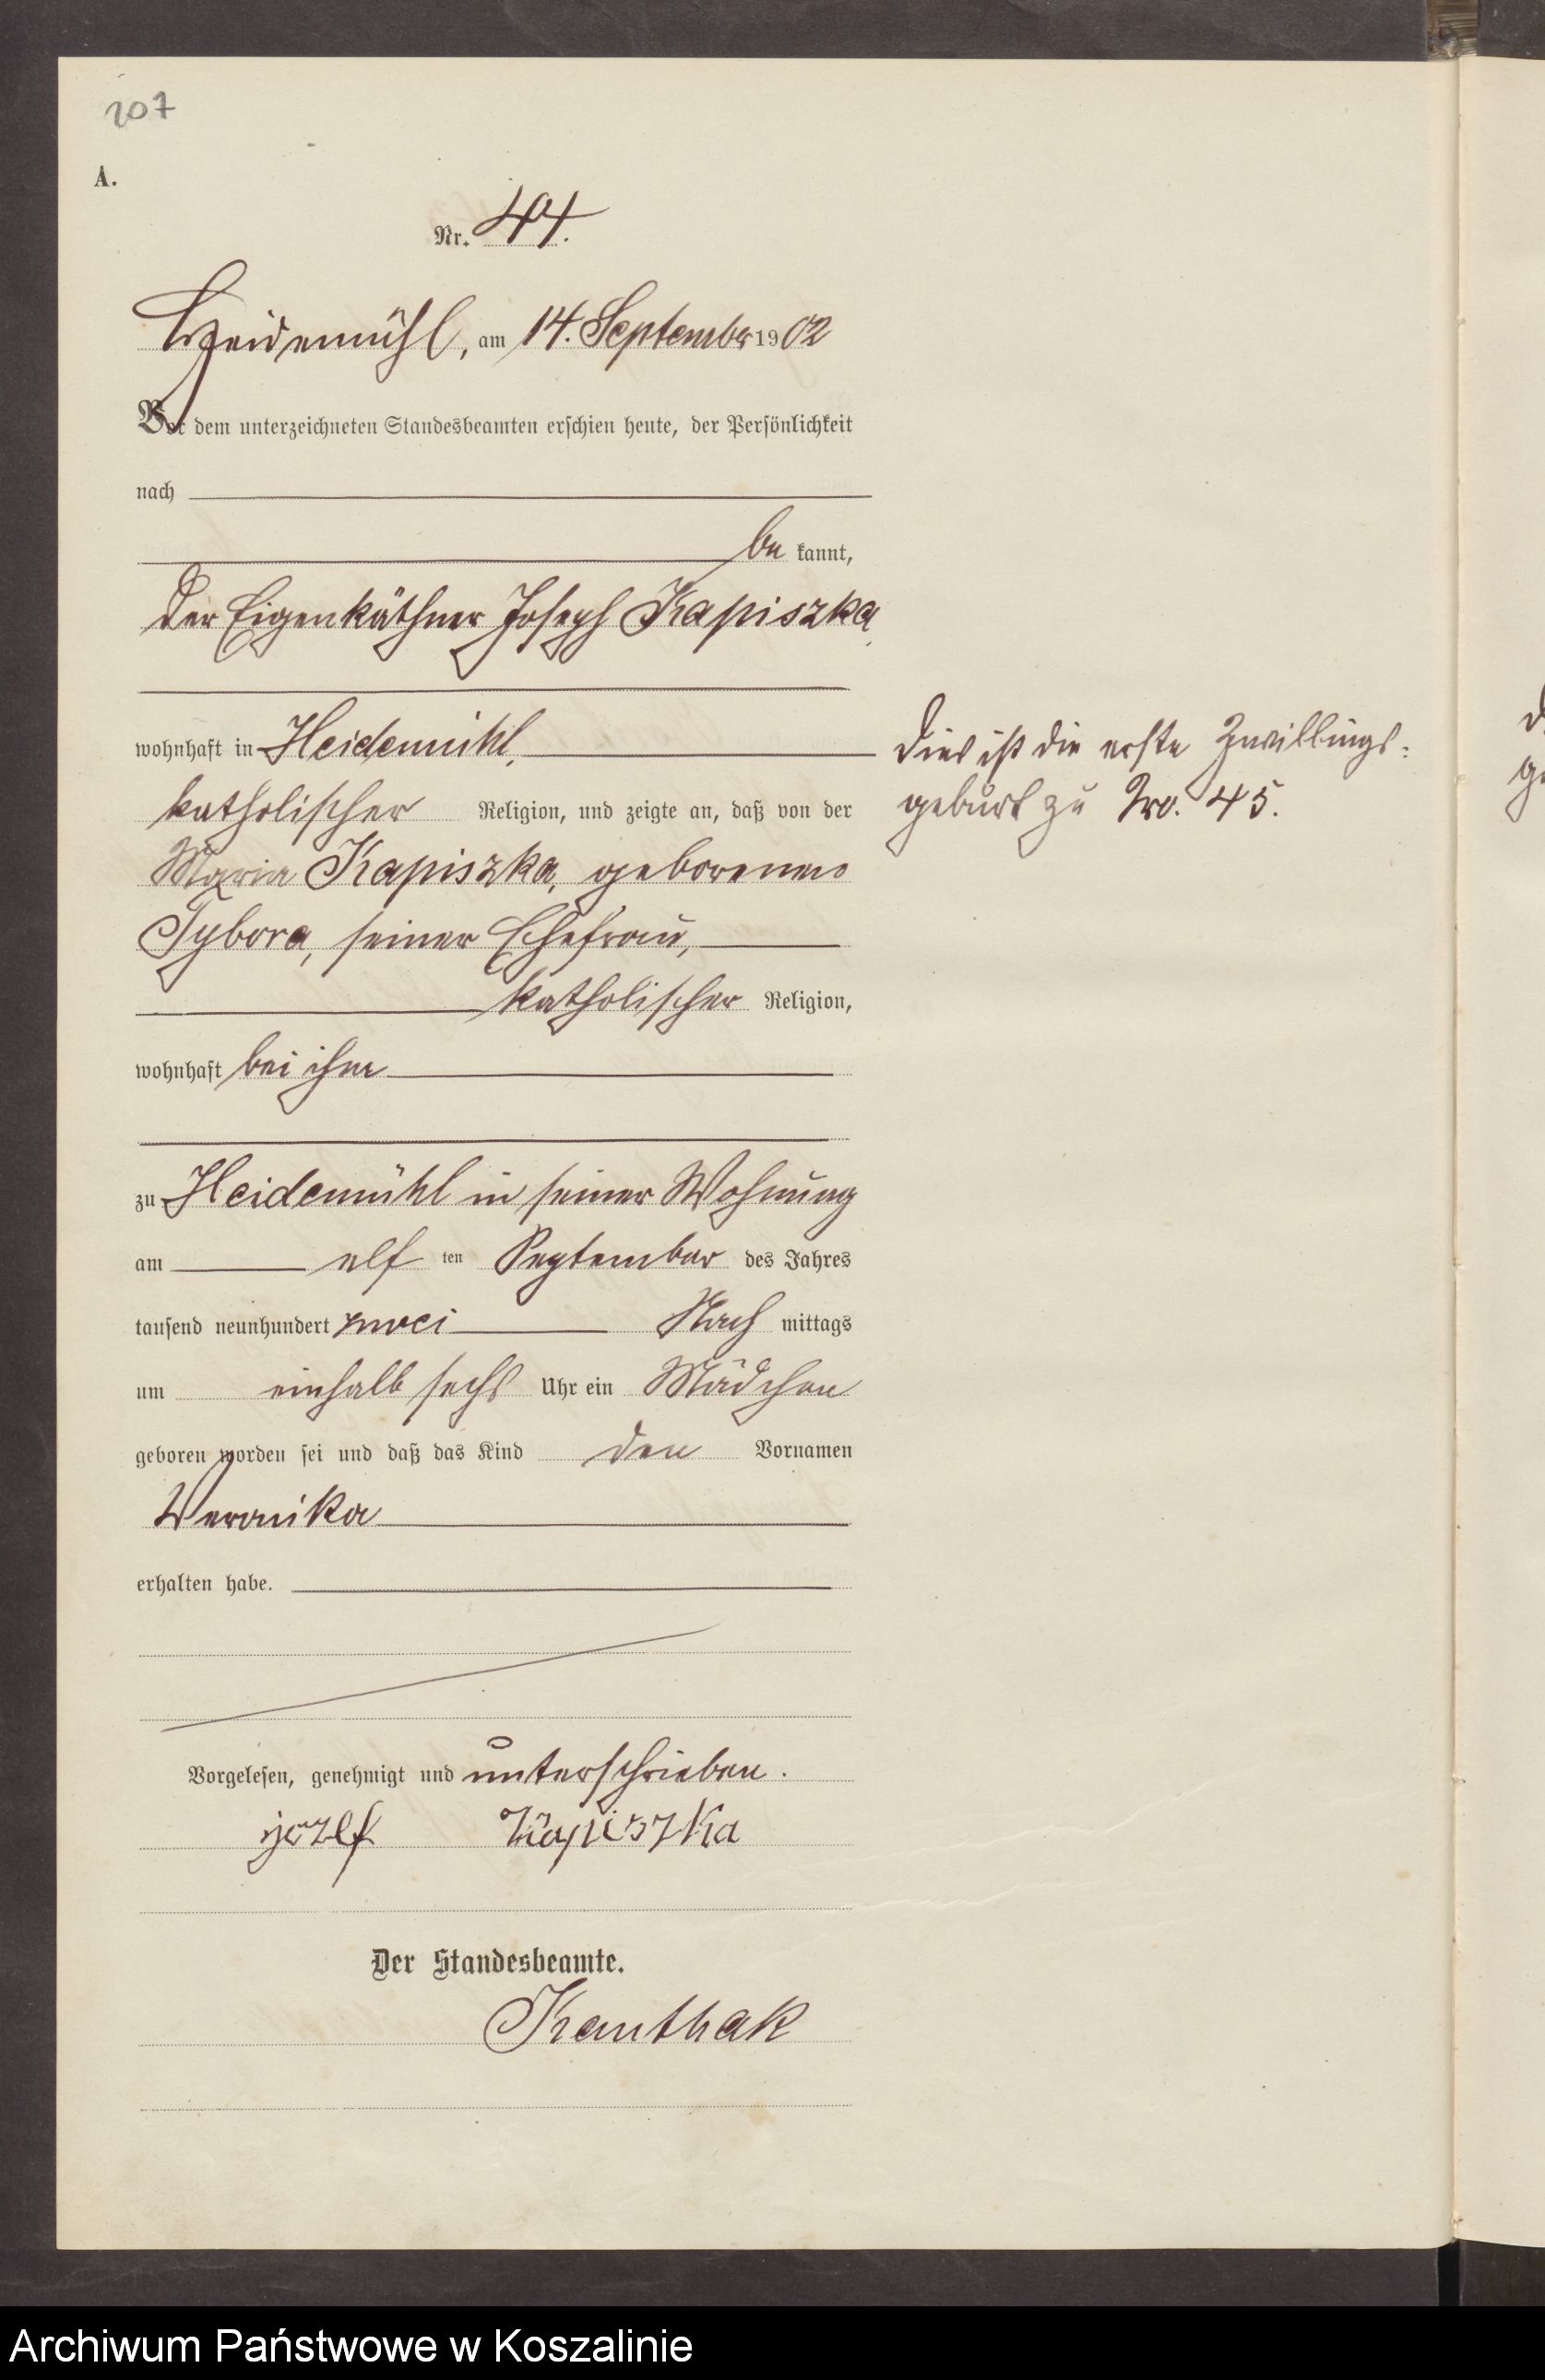 207
A.
Nr. 44.
Heidemühl, am 14. September 1902
Vor dem unterzeichneten Standesbeamten erschien heute, der Persönlichkeit
nach
be kannt,
der Eigenkäthner Joseph Kapiszka,
wohnhaft in Heidemühl,
katholischer Religion, und zeigte an, daß von der
Maria Kapiszka, geborenen
Tybora, seiner Ehefrau,
katholischer Religion,
wohnhaft bei ihm
zu Heidemühl in seiner Wohnung
am elf ten September des Jahres
tausend neunhundert zwei Nach mittags
um einhalb sechs Uhr ein Mädchen
geboren worden sei und daß das Kind den Vornamen
Veronika
erhalten habe.
Vorgelesen, genehmigt und unterschrieben.
jozef Kapiszka
Der Standesbeamte.
Kanthak
Dies ist die erste Zwillings:
geburt zu Nro. 45.
Archiwum Państwowe w Koszalinie